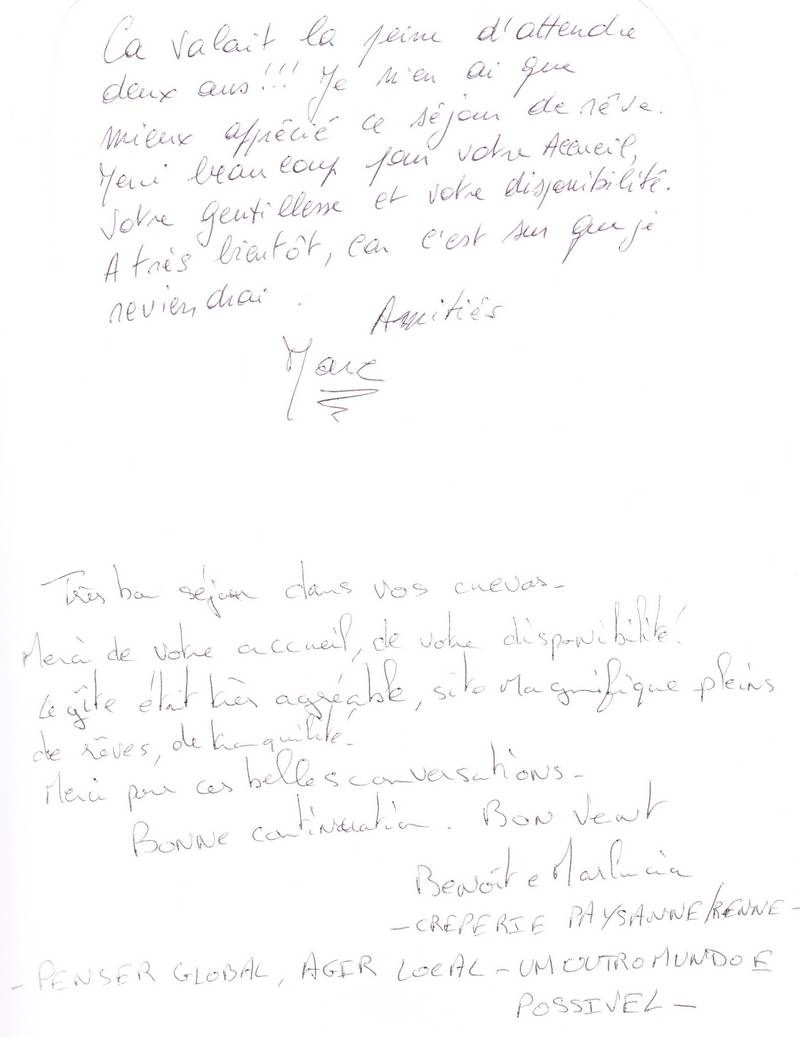 Ca valait la peine d'attendre
deux ans!!! Je n'en ai que
mieux apprécié ce séjour de rêve.
Merci beaucoup pour votre Accueil,
votre gentillesse et votre disponibilité.
A très bientôt, car c'est sur que je
reviendrai.
Amitiés
Marc
Très bon séjour dans vos cuevas -
Merci de votre accueil, de votre disponibilité!
Le gîte était très agréable, site Magnifique pleins
de rêves, de tranquilité.
Merci pour ces belles conversations -
Bonne continuation. Bon vent
Benoît e Marlucia
- CREPERIE PAYSANNE/RENNE -
- PENSER GLOBAL, AGER LOCAL - UM OUTRO MUNDO E
POSSIVEL -